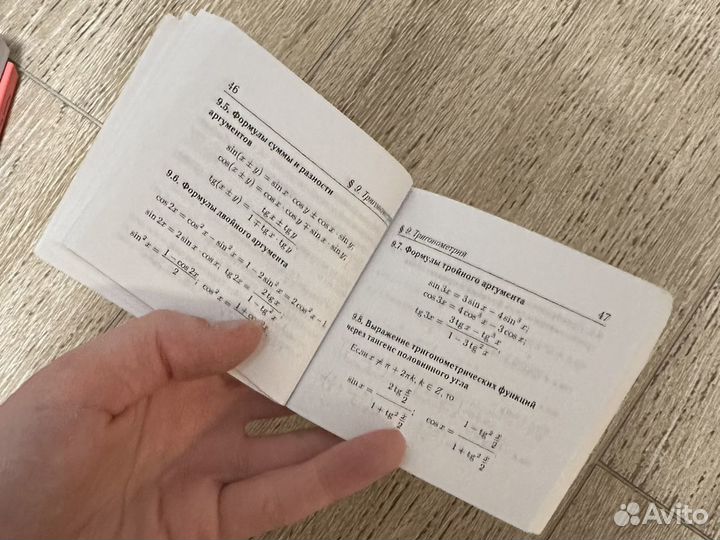 46
§ 9. Тригоном
9.5. Формулы суммы и разности
аргументов
sin(x ± y) = sin x · cos y ± cos x · sin y;
cos(x ± y) = cos x · cos y ∓ sin x · sin y;
tg(x ± y) = (tg x ± tg y)/(1 ∓ tg x · tg y)
9.6. Формулы двойного аргумента
cos 2x = cos² x − sin² x = 1 − 2 sin² x = 2 cos² x − 1
sin 2x = 2 sin x · cos x; tg 2x = (2 tg x)/(1 − tg² x);
sin² x = (1 − cos 2x)/2; cos² x = 1 + cos 2x
§ 9. Тригонометрия
47
9.7. Формулы тройного аргумента
sin 3x = 3 sin x − 4 sin³ x;
cos 3x = 4 cos³ x − 3 cos x;
tg 3x = (3 tg x − tg³ x)/(1 − 3 tg² x).
9.8. Выражение тригонометрических функций
через тангенс половинного угла
Если x ≠ π + 2πk; k ∈ Z, то
sin x = (2 tg x/2)/(1 + tg² x/2); cos x = (1 − tg² x/2)/(1 + tg² x/2)
Avito